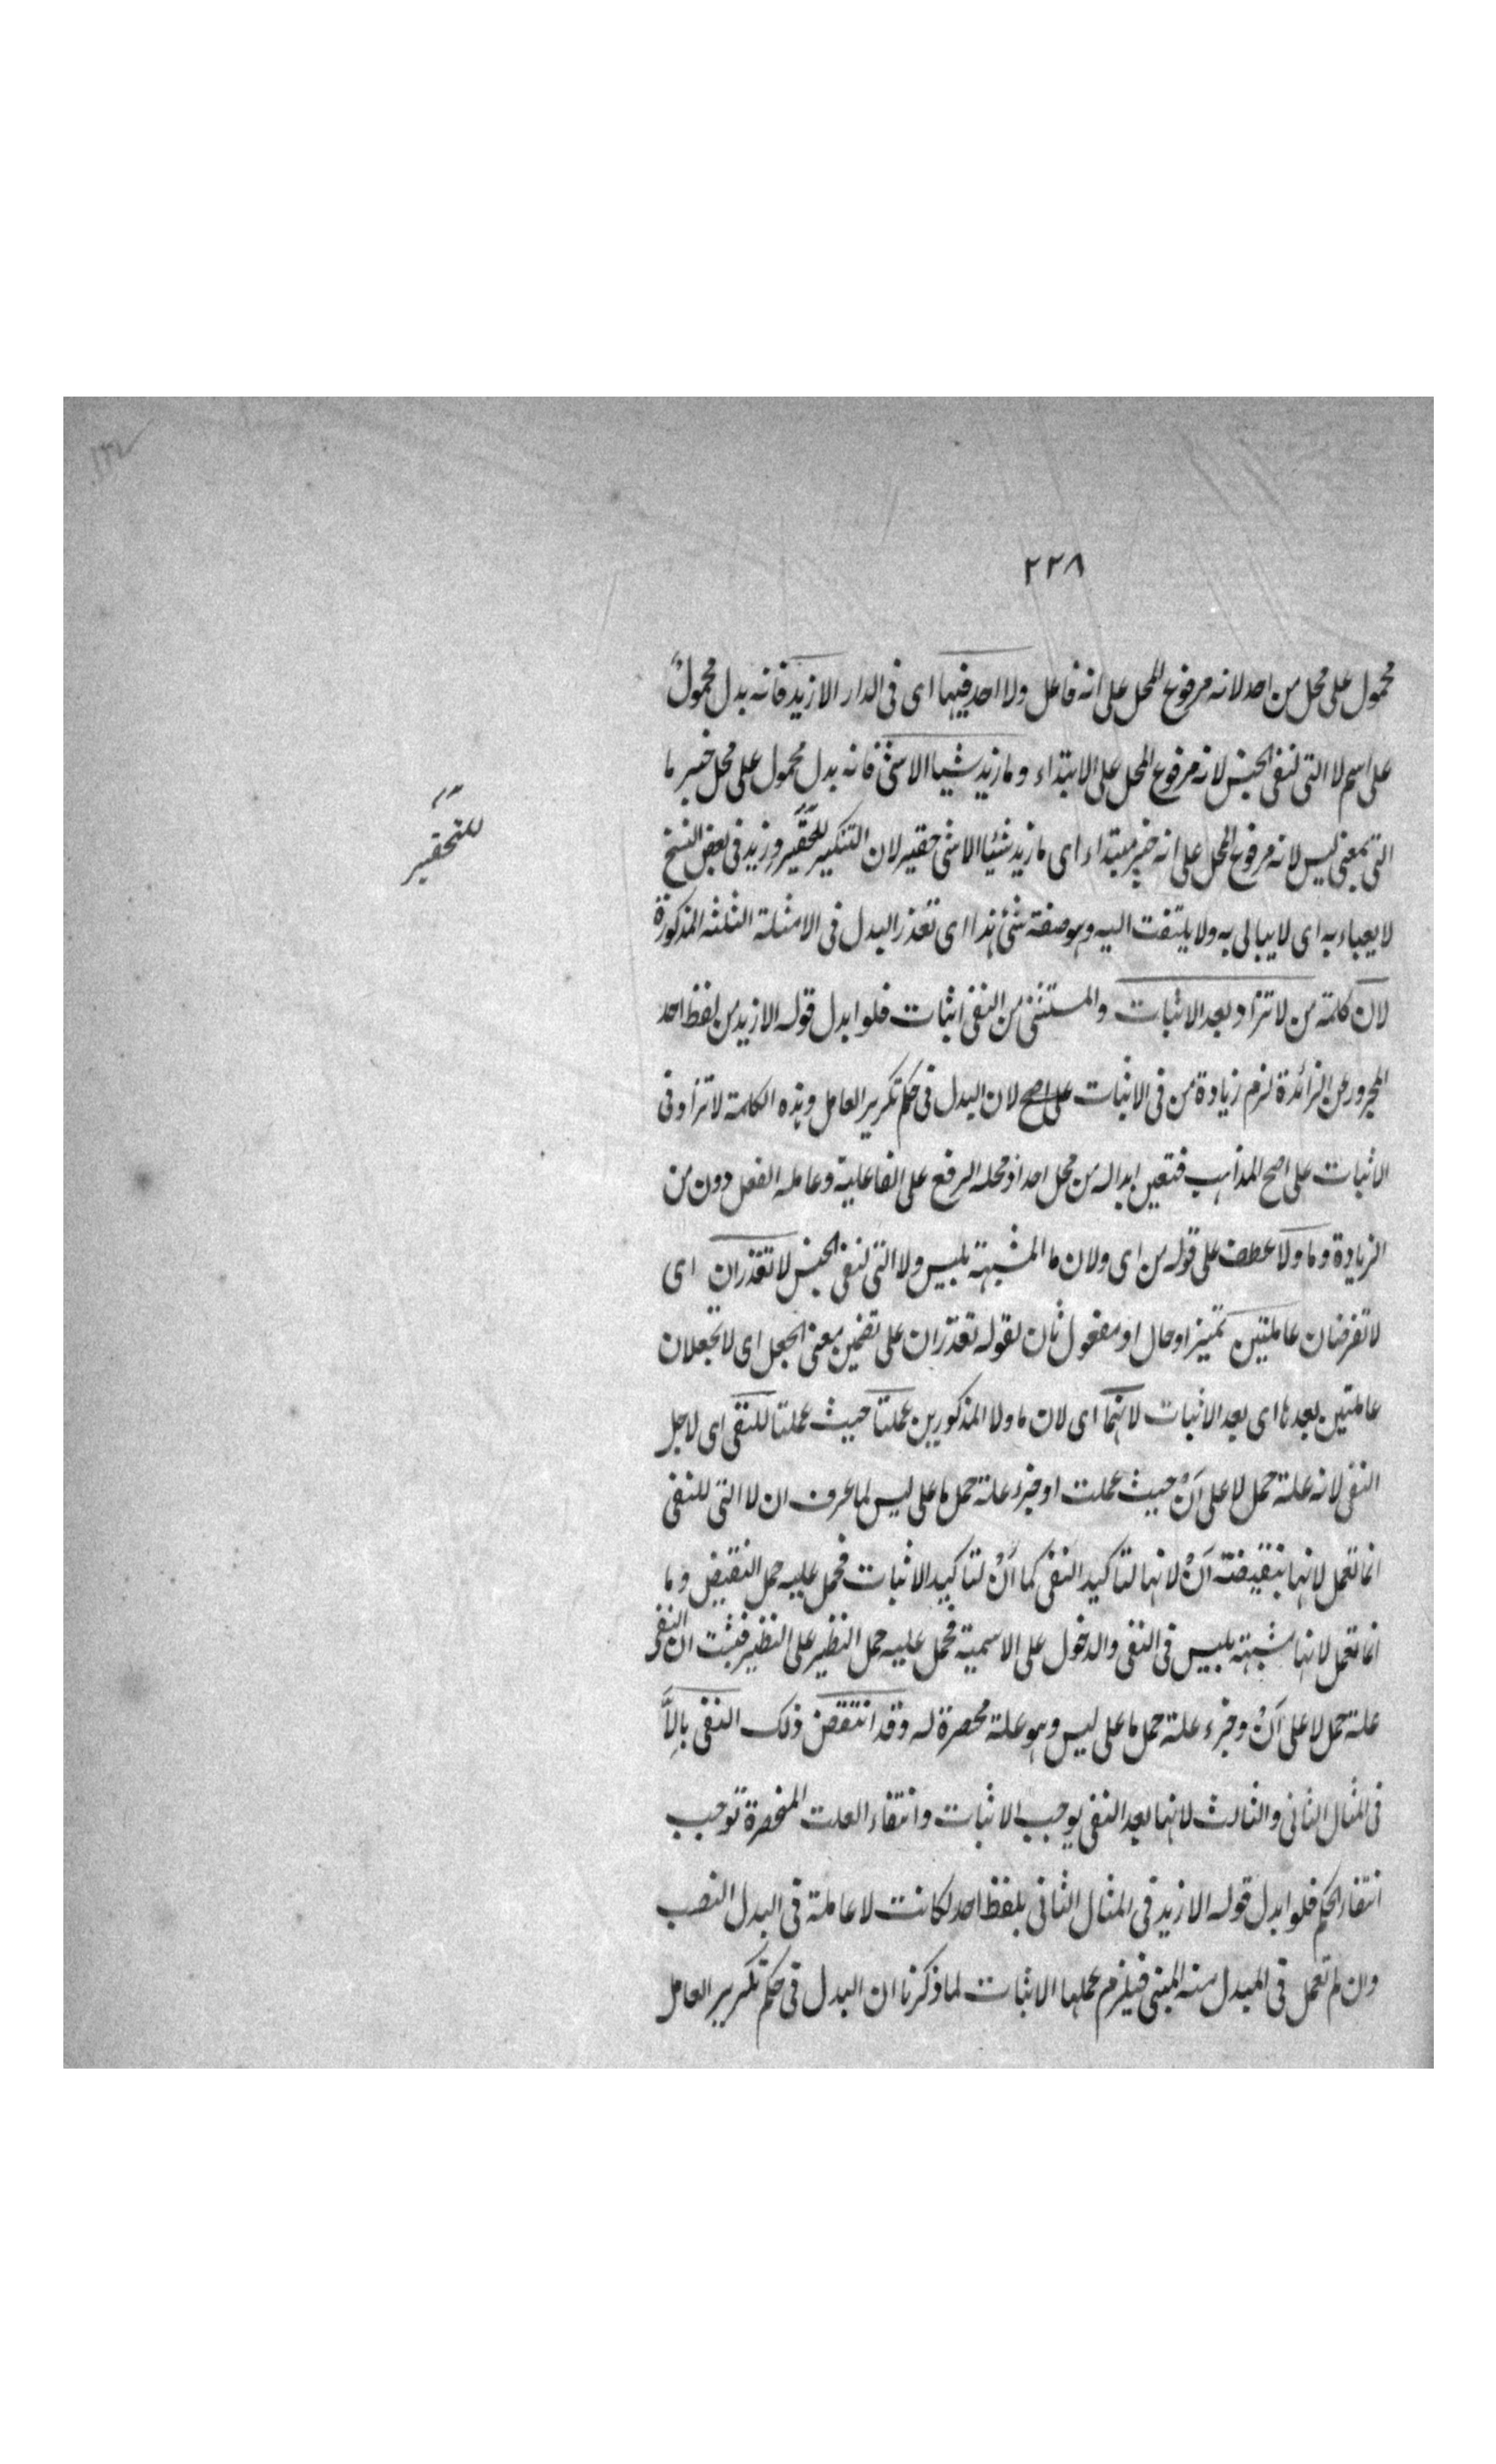 ٢٢٨
محمول على محل من احد لانه مرفوع المحل على انه فاعل ولا احد فيها اى فى الدار الا زيد فانه بدل محمولٌ
على اسم لا التى لنفى الجنس لانه مرفوع المحل على الابتداء وما زيد شيا الا شئ فانه بدل محمول على محل خبر ما
التى بمعنى ليس لانه مرفوع المحل على انه خبر مبتداء اى ما زيد شيئا الا شئ حقير لان التنكير للحقير وزيد فى بعض النسخ
للتحقير
لا يعباء به اى لا يبالى به ولا يلتفت اليه وهو صفة شئ هذا اى تعذر البدل فى الامثلة الثلثه المذكورة
لان كلمة من لا تزاد بعد الاثبات والمستثنى من النفى اثبات فلو ابدل قوله الا زيد من لفظ احد
المجرور عن الزائدة لزم زيادة من فى الاثبات على اصح لان البدل فى حكم تكرير العامل وهذه الكلمة لا تزاد فى
الاثبات على اصح المذاهب فتعين ابداله من محل احد اذ محله الرفع على الفاعلية وعامله الفعل دون من
الزيادة وما ولا عطف على قوله من اى ولان ما المشبهة بليس ولا التى لنفى الجنس لا تقدران اى
لا تفرضان عاملتين تميز او حال او مفعول ثان لقوله تقدران على تضمين معنى الجعل اى لا تجعلان
عاملتين بعدها اى بعد الاثبات لانهما اى لان ما ولا المذكورين عملتا حيث عملتا للنفى اى لاجل
النفى لانه علة حمل لا على اَنْ حيث عملت او جزء علة حمل ما على ليس لما عرف ان لا التى للنفى
انما تعمل لانها بنقيضة اَنْ لانها لتاكيد النفى كما اَنْ لتاكيد الاثبات فحمل عليه حمل النقيض وما
انما تعمل لانها مشبهة بليس فى النفى والدخول على الاسمية فحمل عليه حمل النظير على النظير فثبت ان النفى
علة حمل لا على اَنْ وجزء علة حمل ما على ليس وهو علة محصرة له وقد انتقض ذلك النفى بالاَّ
فى المثال الثانى والثالث لانها بعد النفى يوجب الاثبات وانتفاء العلت المنحصرة توجب
انتفاء الحكم فلو ابدل قوله الا زيد فى المثال الثانى بلفظ احد لكانت لا عاملة فى البدل النصب
وان لم تعمل فى المبدل منه المبنى فيلزم عملها الاثبات لما ذكرنا ان البدل فى حكم تكرير العامل